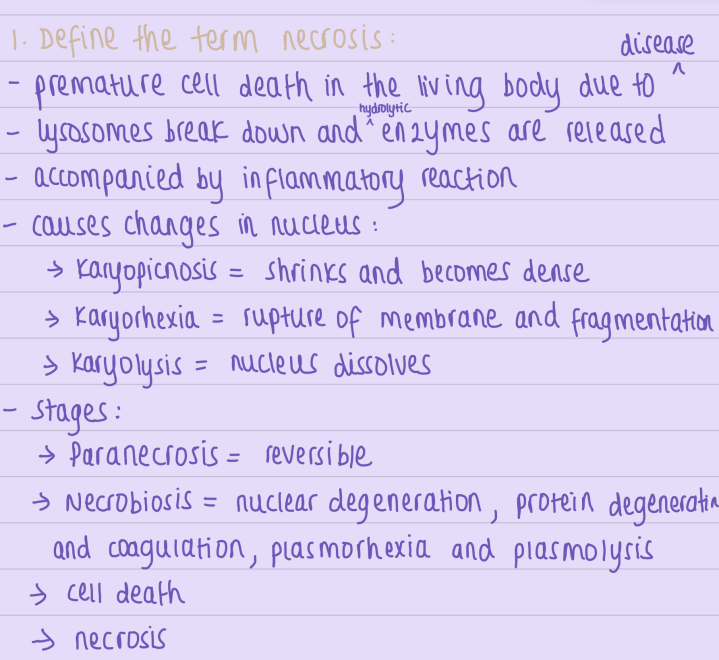 1. Define the term necrosis:
- premature cell death in the living body due to ^ disease
- lysosomes break down and ^ hydrolytic enzymes are released
- accompanied by inflammatory reaction
- causes changes in nucleus:
→ Karyopicnosis = shrinks and becomes dense
→ Karyorhexia = rupture of membrane and fragmentation
→ Karyolysis = nucleus dissolves
- Stages:
→ Paranecrosis = reversible
→ Necrobiosis = nuclear degeneration, protein degeneratin
and coagulation, plasmorhexia and plasmolysis
→ cell death
→ necrosis